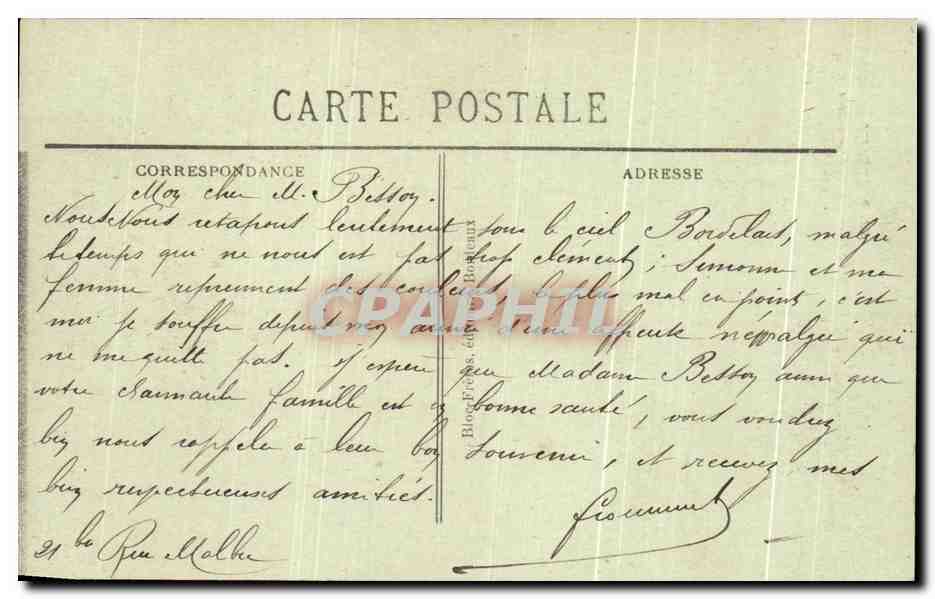 CARTE POSTALE
CORRESPONDANCE
ADRESSE
Mon cher M. Besson.
Nous nous retapons lentement sous le ciel Bordelais, malgré
le temps qui ne nous est pas trop clément ; Simonne et ma
femme reprennent des couleurs, le plus mal en point, c'est
moi je souffre depuis mon arrivée d'une affreuse névralgie qui
ne me quitte pas. J'espère que Madame Besson ainsi que
votre charmante famille est en bonne santé, vous voudrez
bien nous rappeler à leur bon souvenir, et recevez mes
bien respectueuses amitiés.
21 bis Rue Malbec
Bloc Frères, éditeurs Bordeaux
CPAPHIL